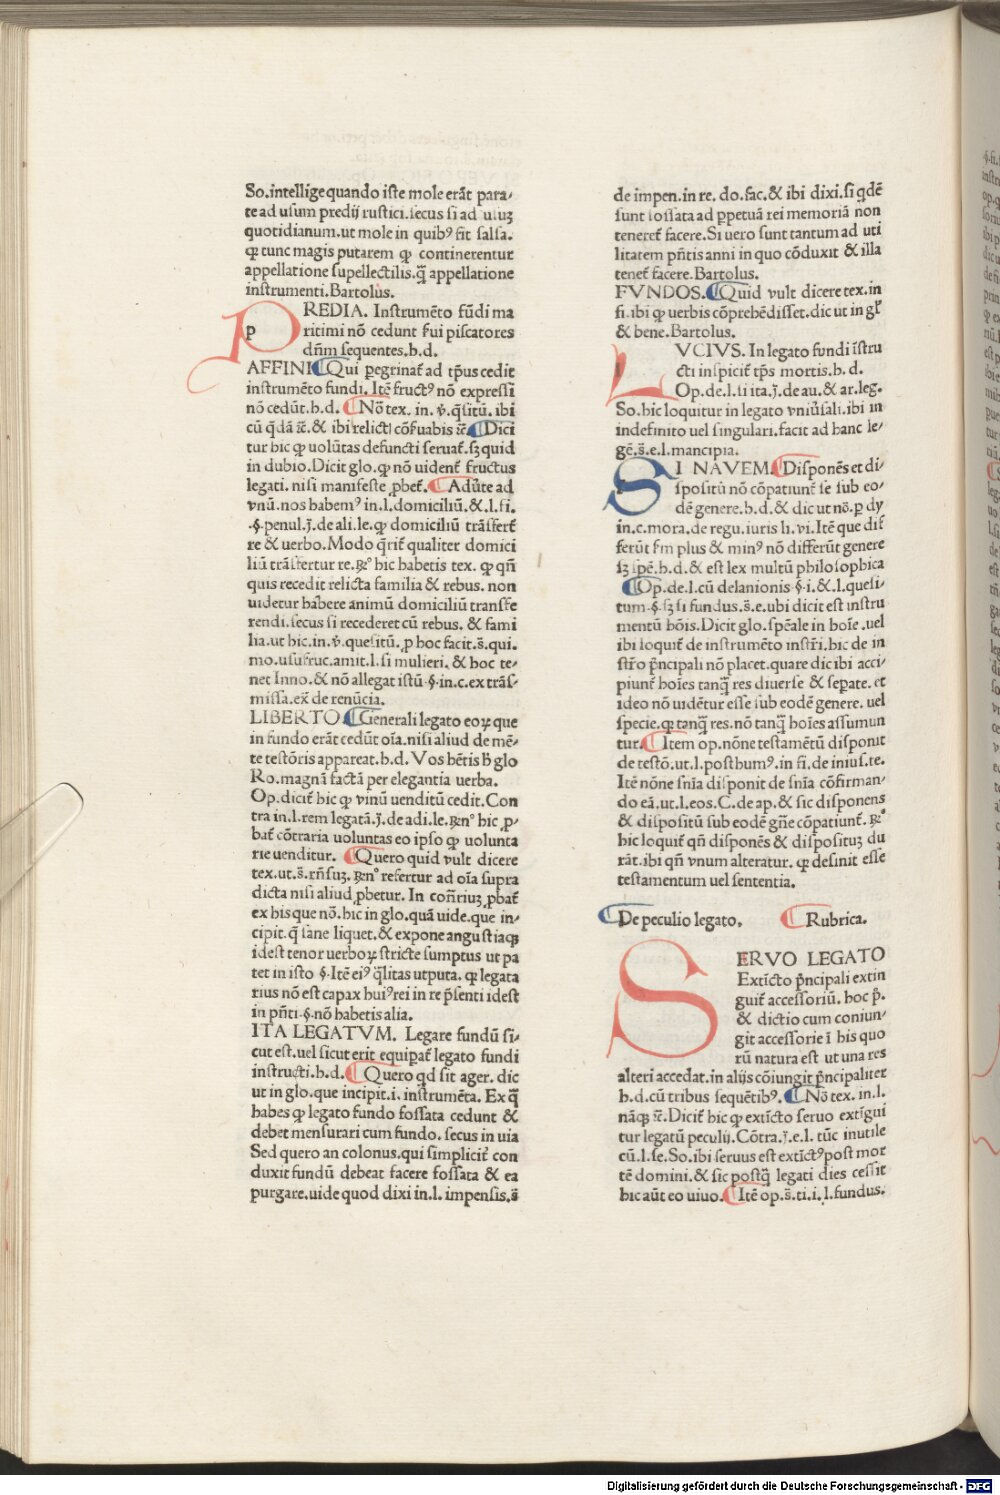 So.intellige quando iste mole erāt para⸗
te ad usum predij rustici.secus si ad usuꝫ
quotidianum.ut mole in quibꝰ fit salsa.
ꝙ tunc magis putarem ꝙ continerentur
appellatione supellectilis.q̄ appellatione
instrumenti.Bartolus.
PREDIA. Instrumēto fūdi ma
ritimi nō cedunt sui piscatores
dn̄m sequentes.h.d.
AFFINI Qui peregrinat̄ ad tp̄us cedit
instrumēto fundi. Itē fructꝰ nō expressi
nō cedūt.h.d. Nō tex. in. v̄. q̄sitū. ibi
cū q̄dā ⁊c̄. & ibi relicti cōfuabis ⁊c̄. Dici
tur hic ꝙ volūtas defuncti seruat̄.sꝫ quid
in dubio.Dicit glo.ꝙ nō uident̄ fructus
legati. nisi manifeste ꝓbet̄. Adūte ad
vnū.nos habemꝰ in.l.domiciliū.&.l.fi.
.§.penul.J̄.de ali.le.ꝙ domiciliū trāsfert̄
re & uerbo.Modo q̄rit̄ qualiter domici
liū trāsfertur re.R̄ꝰ hic habetis tex. ꝙ qn̄
quis recedit relicta familia & rebus. non
uidetur habere animū domiciliū transfe
rendi.secus si recederet cū rebus. & fami
lia.ut hic.in.v̄.quesitū.ꝓ hoc facit.s̄.qui.
mo.usufruc.amit.l.si mulieri. & hoc te⸗
net Inno.& nō allegat istū.§.in.c.ex trās⸗
missa.ex̄ de renūcia.
LIBERTO Generali legato eoꝝ que
in fundo erāt cedūt oīa.nisi aliud de mē⸗
te testōris appareat.h.d. Vos hētis h̄ glo
Ro.magnā factā per elegantia uerba.
Op.dicit̄ hic ꝙ vinū uenditū cedit.Con
tra in.l.rem legatā.J̄.de adi.le.R̄nꝰ hic ꝓ⸗
bat̄ cōtraria uoluntas eo ipso ꝙ uolunta
rie uenditur. Quero quid vult dicere
tex.ut.s̄.rn̄suꝫ.R̄nꝰ refertur ad oīa supra
dicta nisi aliud ꝓbetur. In con̄riuꝫ ꝓbat̄
ex his que nō.hic in glo.quā uide.que in⸗
cipit.q̄ sane liquet.& expone angustiaqꝫ
idest tenor uerboꝝ stricte sumptus ut pa
tet in isto §.Itē eiꝰ q̄litas utputa. ꝙ legata
rius nō est capax huiꝰ rei in re p̄senti idest
in pn̄ti.§.nō habetis alia.
ITA LEGATVM. Legare fundū si⸗
cut est.uel sicut erit equipat̄ legato fundi
instructi.h.d. Quero qd sit ager. dic
ut in glo.que incipit.i. instrumēta. Ex q̄
habes ꝙ legato fundo fossata cedunt &
debet mensurari cum fundo. secus in uia
Sed quero an colonus.qui simplicit̄ con
duxit fundū debeat facere fossata & ea
purgare.uide quod dixi in.l. impensis.s̄
de impen.in re. do.fac.& ibi dixi.si q̄dē
sunt fossata ad ꝑpetuā rei memoriā non
teneret̄ facere.Si uero sunt tantum ad uti
litatem pn̄tis anni in quo cōduxit & illa
tenet̄ facere.Bartolus.
FVNDOS. Quid vult dicere tex.in
fi.ibi ꝙ uerbis cōprehēdisset.dic ut in gl̄
& bene.Bartolus.
LVCIVS. In legato fundi īstru
cti inspicit̄ tp̄s mortis.h.d.
Op.de.l.si ita.J̄.de au.& ar.leg.
So.hic loquitur in legato vniūsali.ibi in
indefinito uel singulari.facit ad hanc le⸗
gē.s̄.e.l.mancipia.
SI NAVEM. Disponēs et di⸗
spositū nō cōpatiunt̄ se sub eo⸗
dē genere.h.d.& dic ut nō.ꝑ dy
in.c.mora.de regu.iuris li.vi.Itē que dif
ferūt s̄m plus & minꝰ nō differūt genere
sꝫ spē.h.d.& est lex multū philosophica
Op.de.l.cū delanionis.§.i.&.l.quesi⸗
tum.§.sꝫ si fundus.s̄.e.ubi dicit est instru
mentū hōis.Dicit glo.spēale in hoīe.uel
ibi loquit̄ de instrumēto instr̄i.hic de in
str̄o p̄ncipali nō placet.quare dic ibi acci⸗
piunt̄ hoīes tanq̄ res diuerse & sepate. et
ideo nō uidētur esse sub eodē genere. uel
specie.ꝙ tanq̄ res.nō tanq̄ hoīes assumun
tur. Item op.nōne testamētū disponit
de testō.ut.l.posthumꝰ.in fi.de inius.te.
Itē nōne snīa disponit de snīa cōfirman⸗
do eā.ut.l.eos.C.de ap.& sic disponens
& dispositū sub eodē gn̄e cōpatiunt̄. R̄ꝰ
hic loquit̄ qn̄ disponēs & dispositꝫ du
rāt.ibi qn̄ vnum alteratur. ꝙ desinit esse
testamentum uel sententia.
De peculio legato. Rubrica.
SERVO LEGATO
Extīcto p̄ncipali extin
guit̄ accessoriū. hoc p̄.
& dictio cum coniun⸗
git accessorie ī his quo
rū natura est ut una res
alteri accedat.in alijs cōiungit p̄ncipaliter
h.d.cū tribus sequētibꝰ. Nō tex.in.l.
nāqꝫ ⁊c̄.Dicit̄ hic ꝙ extīcto seruo extīgui
tur legatū peculij.Cōtra.J̄.e.l. tūc inutile
cū.l.se.So.ibi seruus est extīctꝰ post mor
tē domini.& sic postq̄ legati dies cessit
hic aūt eo uiuo. Itē op.s̄.ti.i.l.fundus.
Digitalisierung gefördert durch die Deutsche Forschungsgemeinschaft - DFG